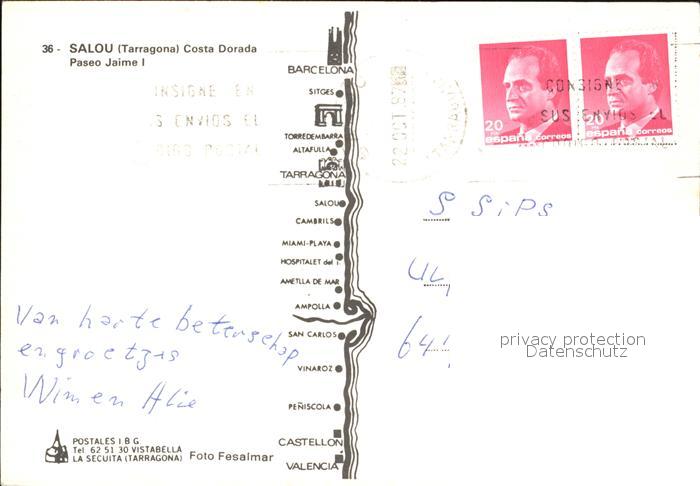 36 - SALOU (Tarragona) Costa Dorada
Paseo Jaime I
INSIGNE EN
S ENVIOS EL
22 OCT 87
CONSIGNE
SUS ENVIOS EL
20
españa correos
20
españa correos
BARCELONA
SITGES
TORREDEMBARRA
ALTAFULLA
TARRAGONA
SALOU
CAMBRILS
MIAMI-PLAYA
HOSPITALET del I.
AMETLLA DE MAR
AMPOLLA
SAN CARLOS
VINAROZ
PEÑISCOLA
CASTELLON
VALENCIA
Van harte beterschap
en groetjes
Wim en Alie
S SiPS
64
privacy protection
Datenschutz
POSTALES I.B.G.
Tel. 62 51 30 VISTABELLA
LA SECUITA (TARRAGONA) Foto Fesalmar